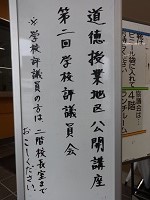 道徳授業地区公開講座
第二回学校評議員会
※学校評議員の方は、二階校長室まで
おこしください。
ビニール袋に入れて
4階
ランチルーム